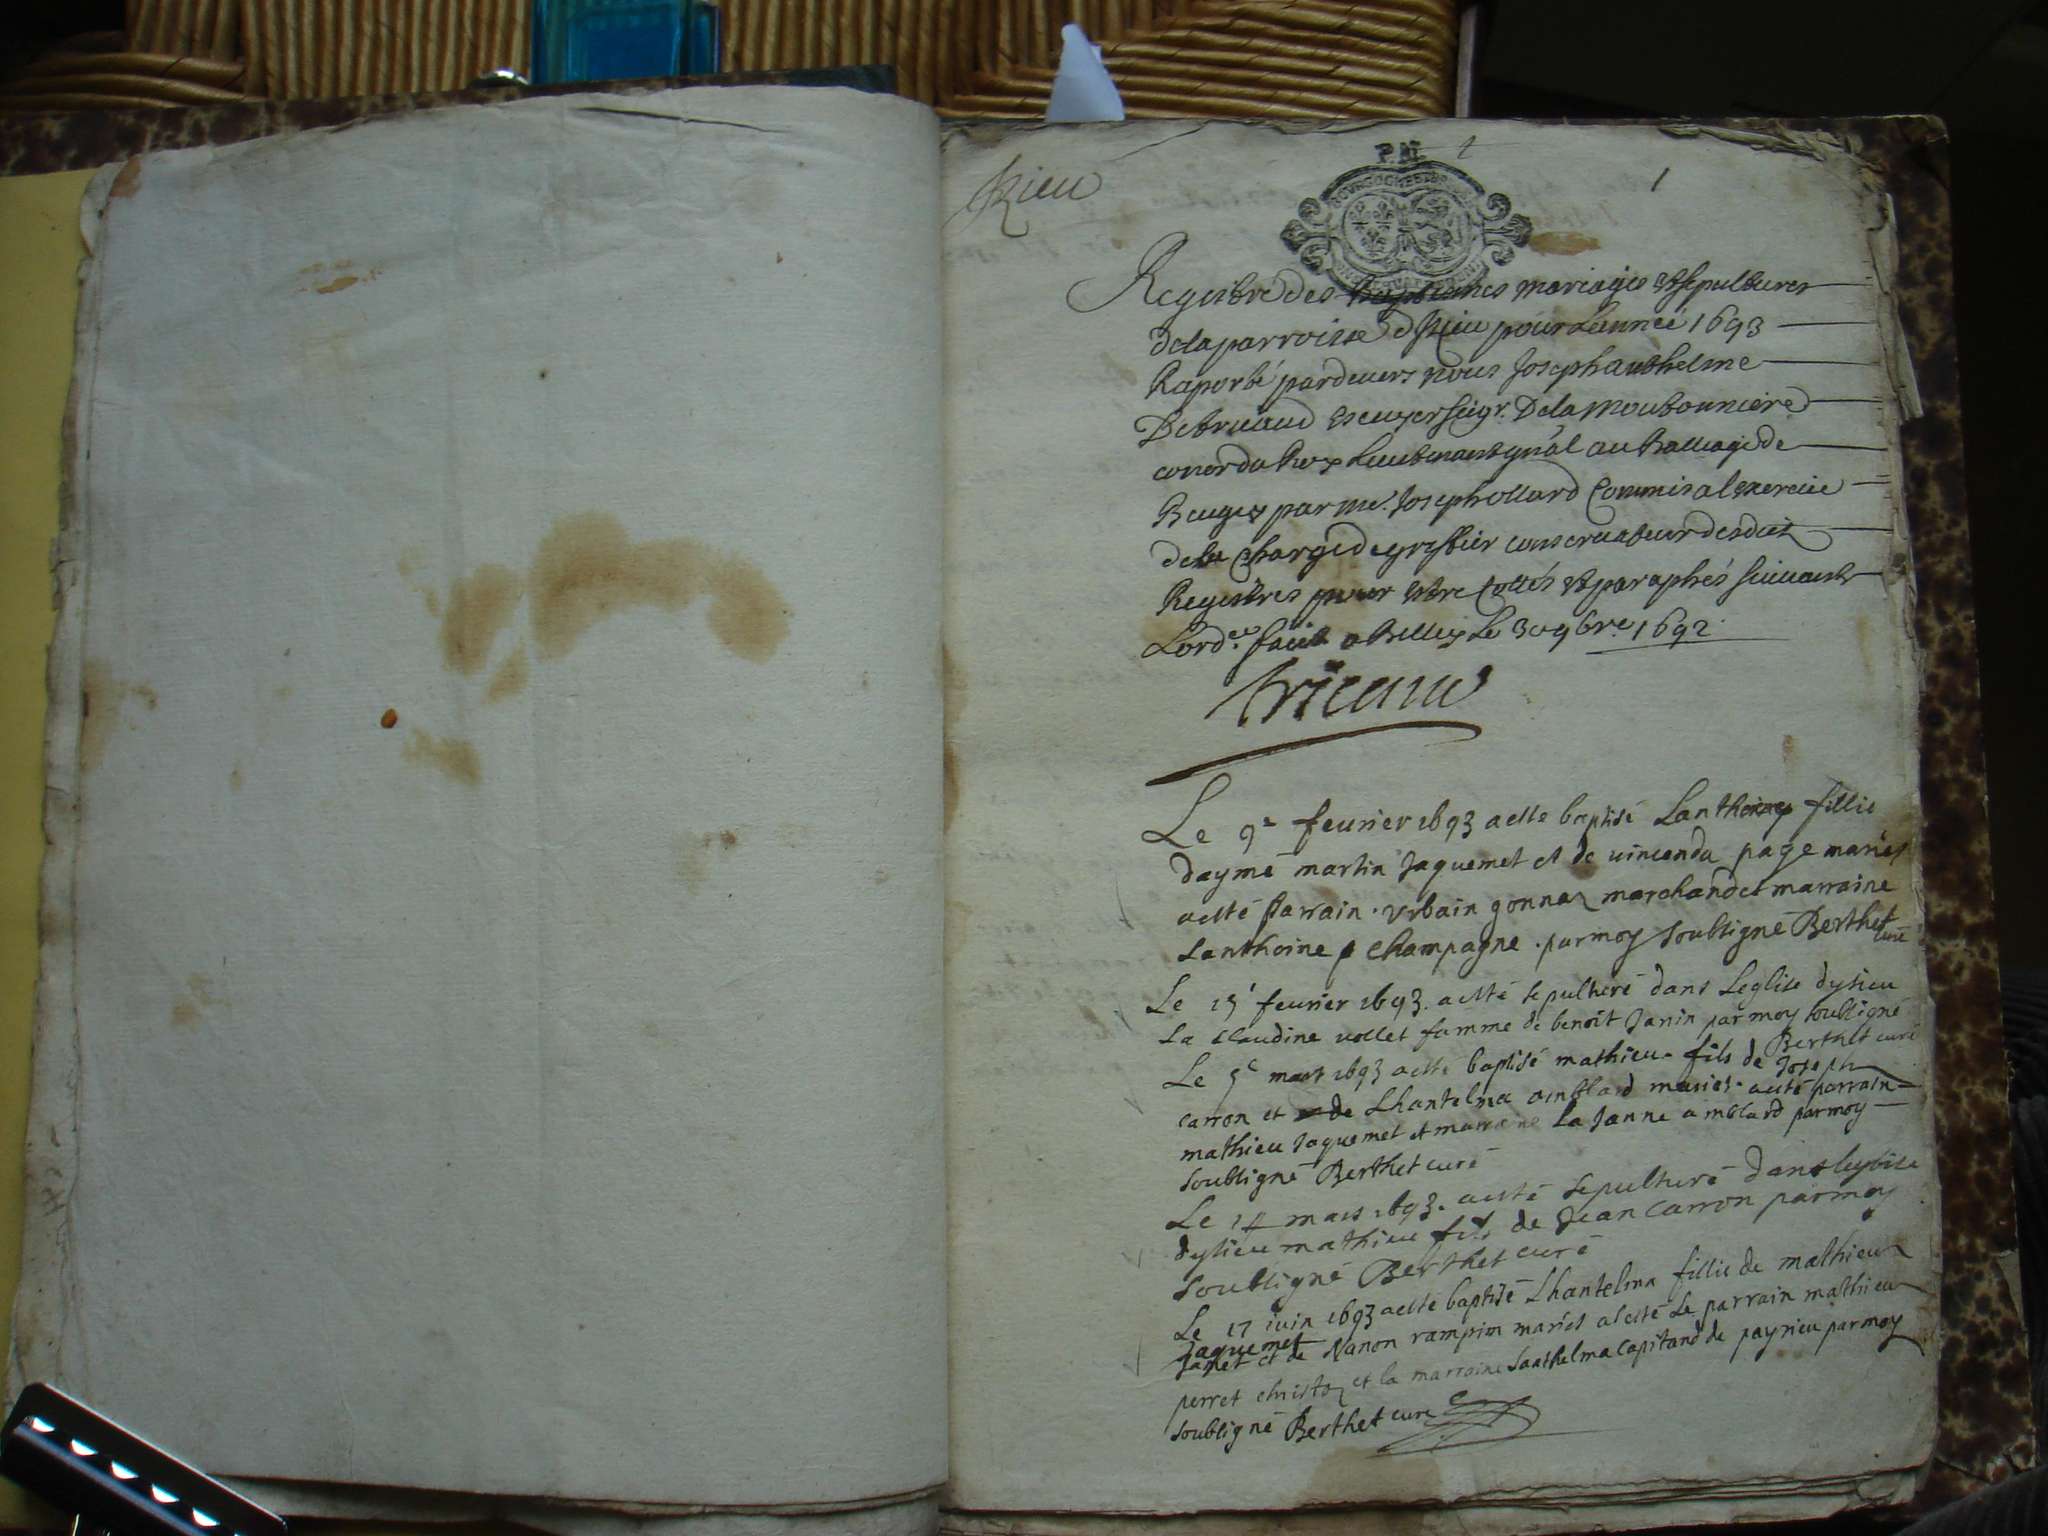 Rieu
P. N.
1
Regestre des baptesmes mariages et sepultures
de la parroisse d Rieu pour Lannéé 1693
Raporté pardeuers nous Joseph anthelme
Detricaud escuyer seigr. De la moutonniere
conerdu Roy Lieutenant gnâl au balliage de
Beugey par me. Joseph ollard Commis a lexercice
de la Charge de greffier conseruateur desdicts
Regestres pour estre Cottés et paraphés suiuant
Lordce. faict a Belley Le 30 9bre. 1692.
tricaud
Le 9e feurier 1693 a esté baptisé Lanthoine fillie
daymé martin Jaquemet et de uincenda page mariés
a esté parrain. Vrbain gonnaz marchand et marraine
Lanthoine champagne. par moy soubsigné Berthet
curé
Le 15e feurier 1693. a esté sepulturé dans Leglise dysieu
La Claudine vollet famme de benoit Janin par moy soubsigné
Berthet curé
Le 5e mars 1693 a esté baptisé mathieu. fils de Joseph
carron et de Lhantelma amblard mariés. a esté parrain
mathieu Jaquemet et marraine La Janne amblard par moy
soubsigné Berthet curé
Le 14 mars 1693. a esté sepulturé dans leglise
dysieu mathieu fils de Jean Carron par moy
soubsigné Berthet curé
Le 17 iuin 1693 a esté baptisé Lhantelma fillie de mathieu
Jaquemet
et de Nanon rampin mariés a esté Le parrain mathieu
perret christoz et la marraine Lanthelma Capitand de peyrieu par moy
soubsigné Berthet curé